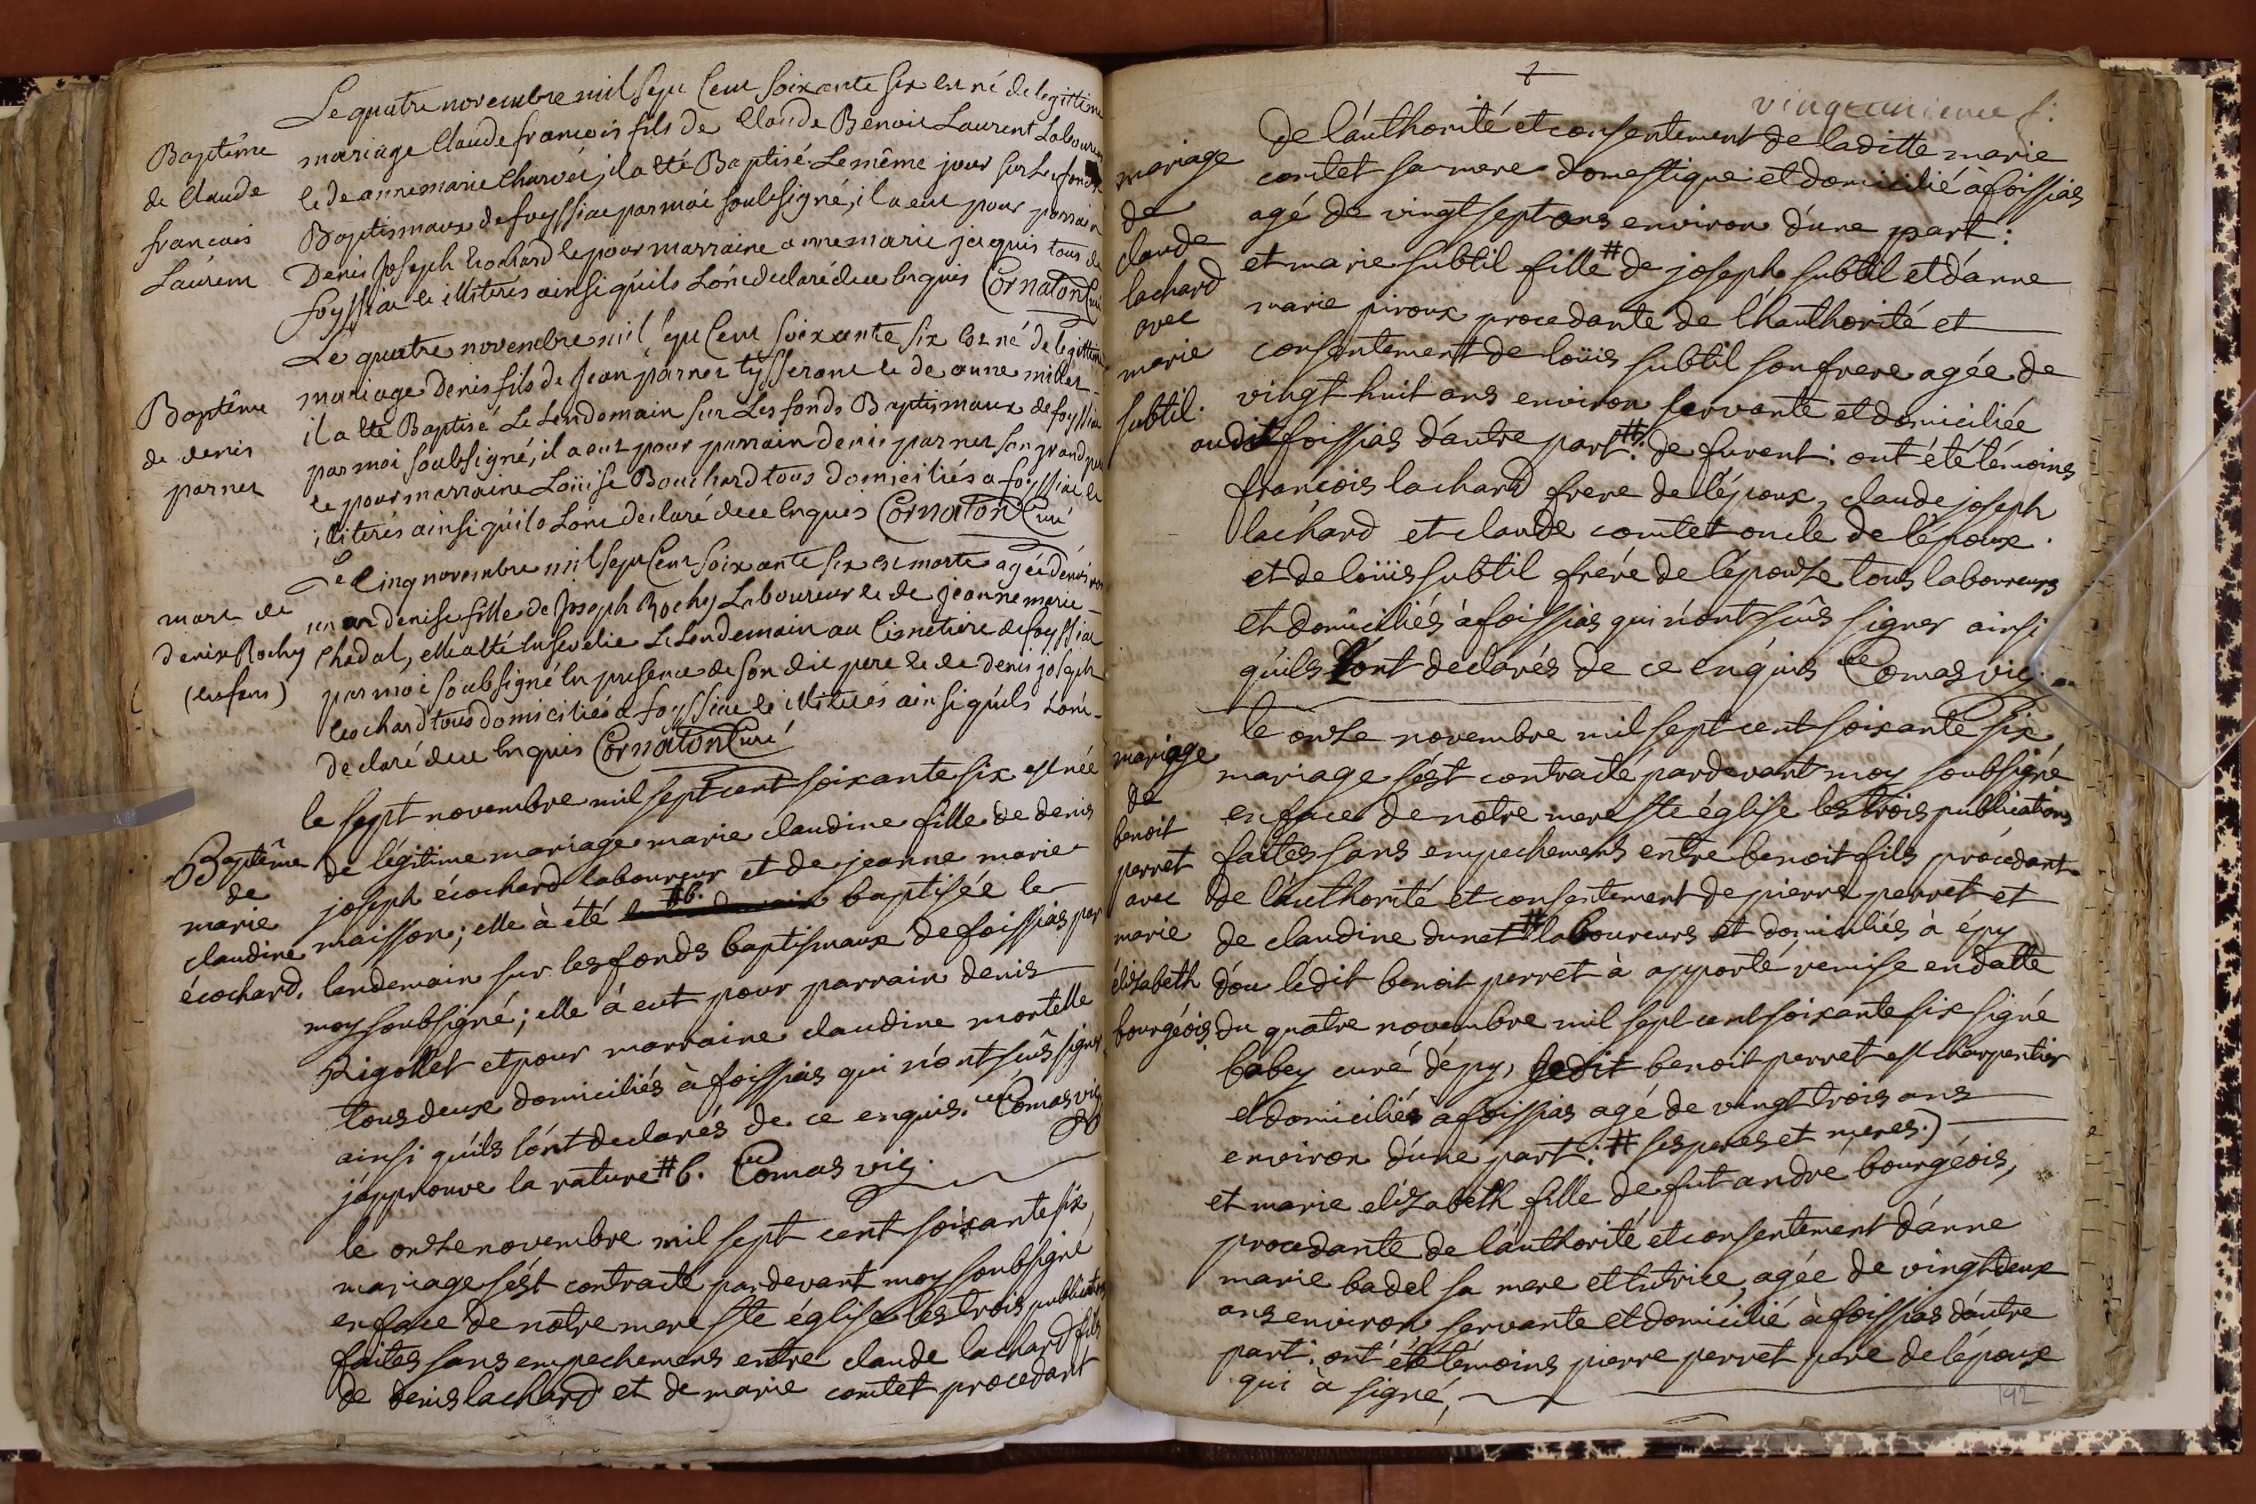 Le quatre novembre mil sept cent soixante six est né de legittime
Baptême
de Claude
francois
Laurent
mariage Claude francois fils de Claude Benoit Laurent Laboureur
et de anne marie Charvet, il a été Baptisé Le même jour sur Les fonds
Baptismaux de foyssiac par moi soubsigné, il a eut pour parrain
Denis Joseph Ecochard et pour marraine anne marie jaquis tous de
foyssiac et illiterés ainsi qu'ils L'ont declaré de ce Enquis Cornaton Curé
Le quatre novembre mil sept cent soixante six est né de legittime
Baptême
de denis
parner
mariage denis fils de Jean parner tysserant et de anne millet
il a été Baptisé Le Lendemain sur Les fonds Baptismaux de foyssiac
par moi soubsigné, il a eut pour parrain denis parner son grand pere
et pour marraine Loüise Bouchard tous domiciliés a foyssiac et
illiterés ainsi qu'ils L'ont declaré de ce Enquis Cornaton Curé
Le Cinq novembre mil sept cent soixante six est morte agée d'environ
mort de
denise Rochy
(enfans)
un an denise fille de Joseph Rochy Laboureur et de jeanne marie
Chadal, elle a été Ensevelie Le Lendemain au Cimetiere de foyssiac
par moi soubsigné En presence de son dit pere et de denis joseph
Ecochard tous domiciliés a foyssiac et illiterés ainsi qu'ils L'ont
declaré de ce Enquis Cornaton Curé
le sept novembre mil sept cent soixante six est née
Baptême
de
marie
claudine
écochard.
de légitime mariage marie claudine fille de denis
joseph écochard laboureur et de jeanne marie
maisson; elle à été #b. baptisée le
landemain sur les fonds baptismaux de foissias par
moy soubsigné; elle à eut pour parrain denis
Rigollet et pour marraine claudine mortelle
tous deux domiciliés à foissias qui n'ont sçus signer
ainsi qu'ils l'ont declarés de ce enquis. Comas vic.
j'approuve la rature #b. Comas vic.
le onze novembre mil sept cent soixante six,
mariage s'ést contracté pardevant moy soubsigné
en face de nôtre mere ste église les trois publications
faites sans empechemens entre claude lachard fils
de denis lachard et de marie comtet procedant
vingt unieme f.
mariage
de
claude
lachard
avec
marie
subtil.
de l'authorité et consentement de laditte marie
comtet sa mere domestique et domicilié à foissias
agé de vingt sept ans environ d'une part:
et marie subtil fille # de joseph subtil et d'anne
marie piroux procedante de l'hauthorité et
consentement de loüis subtil son frere agée de
vingt huit ans environ servante et domiciliée
audit foissias d'autre part. #. de furent: ont été témoins
françois lachard frere de l'époux, claude joseph
lachard et claude comtet oncle de l'époux.
et de loüis subtil frére de l'épouse tous laboureurs
et domiciliés à foissias qui n'ont sçûs signer ainsi
qu'ils l'ont declarés de ce enquis Comas vic.
le onze novembre mil sept cent soixante six,
mariage
de
benoit
perret
avec
marie
élizabeth
bourgéois.
mariage s'ést contracté pardevant moy soubsigné
en face de nôtre mere ste église les trois publications
faites sans empechemens entre benoit fils procedant
de l'authorité et consentement de pierre perret et
de claudine dunet # laboureurs et domiciliés à épy
d'ou lédit benoit perret à apporté remise en datte
du quatre novembre mil sept cent soixante six signé
babey curé d'épy, ledit benoit perret est charpentier
et domicilié à foissias agé de vingt trois ans
environ d'une part: # ses peres et meres.)
et marie elizabeth fille de fut andré bourgéois,
procedante de l'authorité et consentement d'anne
marie badel sa mere et tutrice, agée de vingt deux
ans environ servante et domicilié à foissias d'autre
part. ont été témoins pierre perret pere de l'époux
qui à signé,
192